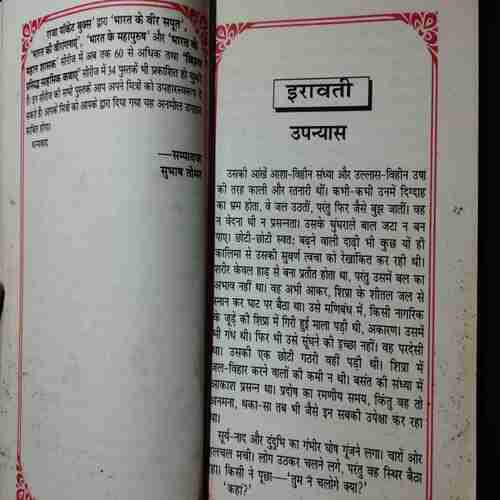 राजा पॉकेट बुक्स' द्वारा 'भारत के वीर सपूत',
'भारत की वीरांगनाएं', 'भारत के महापुरुष' और 'भारत के
महान शासक' सीरीज में अब तक 60 से अधिक तथा
प्रसिद्ध साहसिक कथाएं' सीरीज में 34 पुस्तकें भी प्रकाशित हो चुकी
हैं। इन सीरीज की सभी पुस्तकें आप अपने मित्रों को उपहारस्वरूप दे
सकते हैं। आपके मित्रों को आपके द्वारा दिया गया यह अनमोल उपहार
साबित होगा।
धन्यवाद
—सम्पादक
सुभाष तोमर
इरावती
उपन्यास
उसकी आंखें आशा-विहीन संध्या और उल्लास-विहीन उषा
की तरह काली और रतनारी थीं। कभी-कभी उनमें दिग्दाह
का भ्रम होता, वे जल उठतीं, परंतु फिर जैसे बुझ जातीं। वह
न वेदना थी न प्रसन्नता। उसके घुंघराले बाल जटा न बन
पाए। छोटी-छोटी स्वत: बढ़ने वाली दाढ़ी भी कुछ यों ही
कालिमा से उसकी सुवर्ण त्वचा को रेखांकित कर रही थी।
शरीर केवल हाड़ से बना प्रतीत होता था, परंतु उसमें बल का
अभाव नहीं था। वह अभी आकर, शिप्रा के शीतल जल से
स्नान कर घाट पर बैठा था। उसे मणिबंध में, किसी नागरिक
के जूड़े की शिप्रा में गिरी हुई माला पड़ी थी, अकारण। उसमें
भी गंध थी। फिर भी उसे सूंघने की इच्छा नहीं। वह परदेसी
था। उसकी एक छोटी गठरी वहीं पड़ी थी। शिप्रा में
जल-विहार करने वालों की कमी न थी। बसंत की संध्या में
आकाश प्रसन्न था। प्रदोष का रमणीय समय, किंतु वह तो
अनमना, थका-सा तब भी जैसे इन सबकी उपेक्षा कर रहा
था।
सूर्य-नाद और दुंदुभि का गंभीर घोष गूंजने लगा। चारों ओर
हलचल मची। लोग उठकर चलने लगे, परंतु वह स्थिर बैठा
रहा। किसी ने पूछा—'तुम न चलोगे क्या?'
'कहां?'